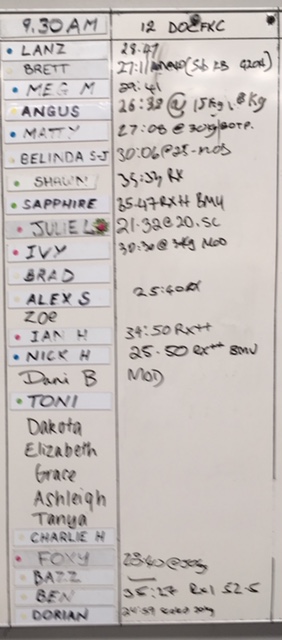 9.30AM 12
LANZ 28:47
BRETT 27:11
MEG M 29:41
ANGUS 26:38 @ 15kg
MATTY 27:08 @ 30kg
BELINDA S-J 30:06@25-MOD
SHAWN 35:34 RX
SAPPHIRE 35:47 RX++ BMU
JULIE L 21:32@20.SC
IVY 30:30@ MOD
BRAD
ALEX S 25:40RX
Zoe
IAN H 34:50 Rx++
NICK H 25:50 Rx++ BMU
Dani B MOD
TONI
Dakota
Elizabeth
Grace
Ashleigh
Tanya
CHARLIE H
FOXY 28:40@
BAZZ
BEN 35:27 Rx 52.5
DORIAN 24:59